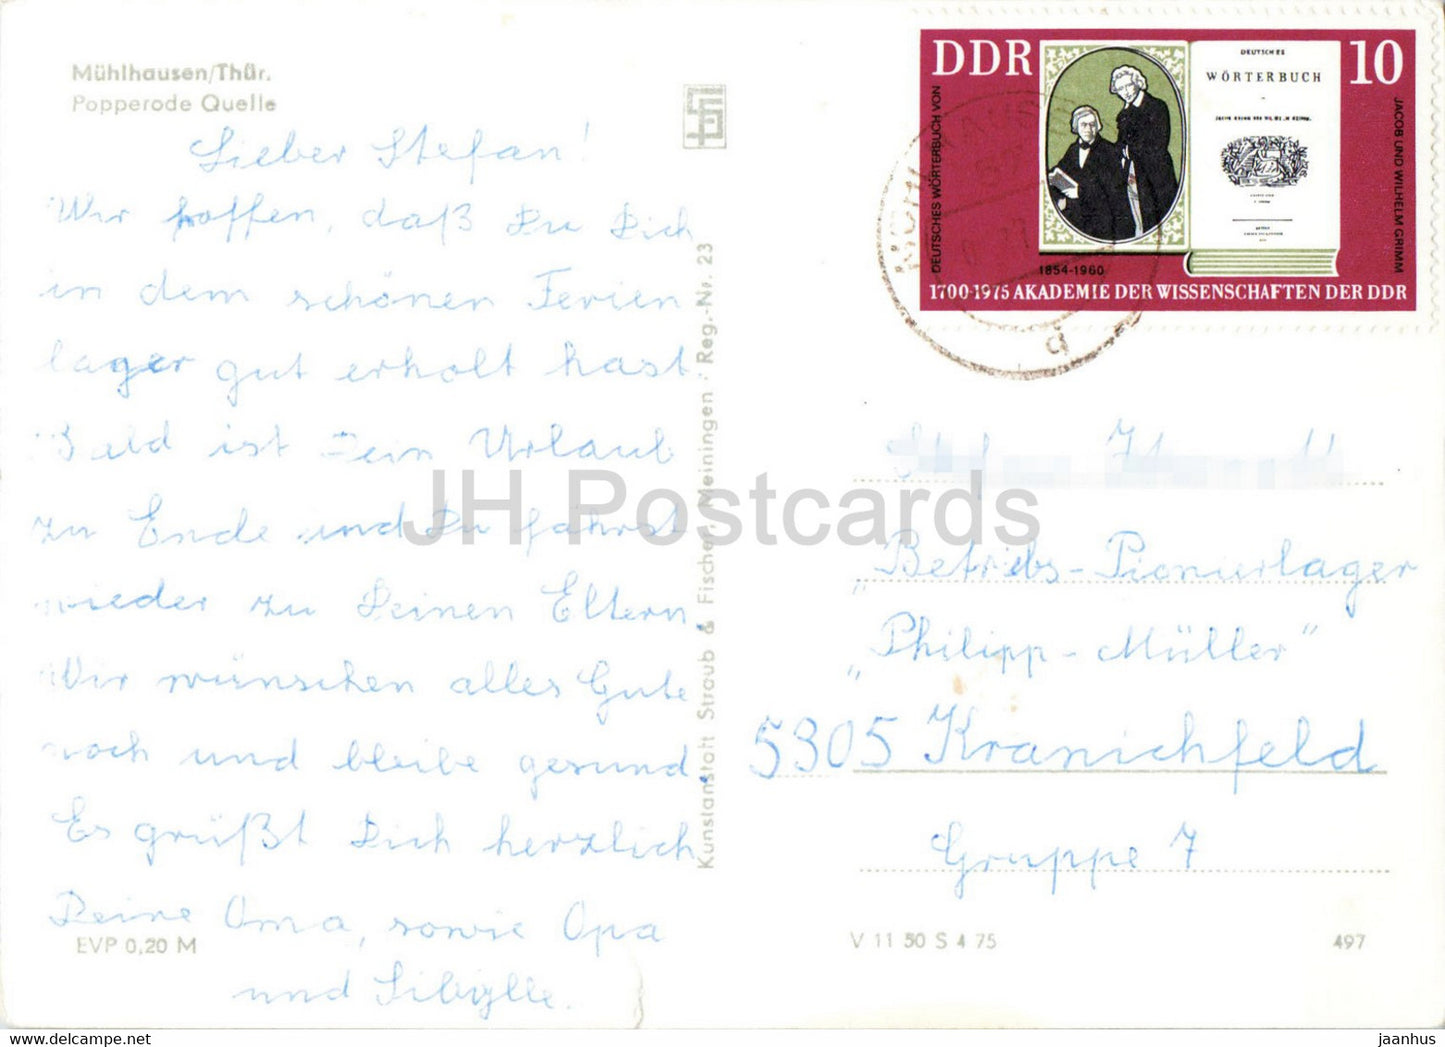 Mühlhausen/Thür.
Popperode Quelle
Lieber Stefan!
Wir hoffen, daß Du Dich
in dem schönen Ferien
lager gut erholt hast
Bald ist Dein Urlaub
zu Ende und Du fährst
wieder zu Deinen Eltern.
Wir wünschen alles Gute
noch und bleibe gesund.
Es grüßt Dich herzlich
Deine Oma, sowie Opa
und Sibylle.
EVP 0,20 M
Kunstanstalt Straub & Fischer, Meiningen · Reg.-Nr. 23
DDR
10
DEUTSCHES WÖRTERBUCH VON
JACOB UND WILHELM GRIMM
DEUTSCHES
WÖRTERBUCH
1854-1960
1700-1975 AKADEMIE DER WISSENSCHAFTEN DER DDR
"Betriebs-Pionierlager
"Philipp-Müller"
5305 Kranichfeld
Gruppe 7
V 11 50 S 4 75
497
JH Postcards
jaanhus